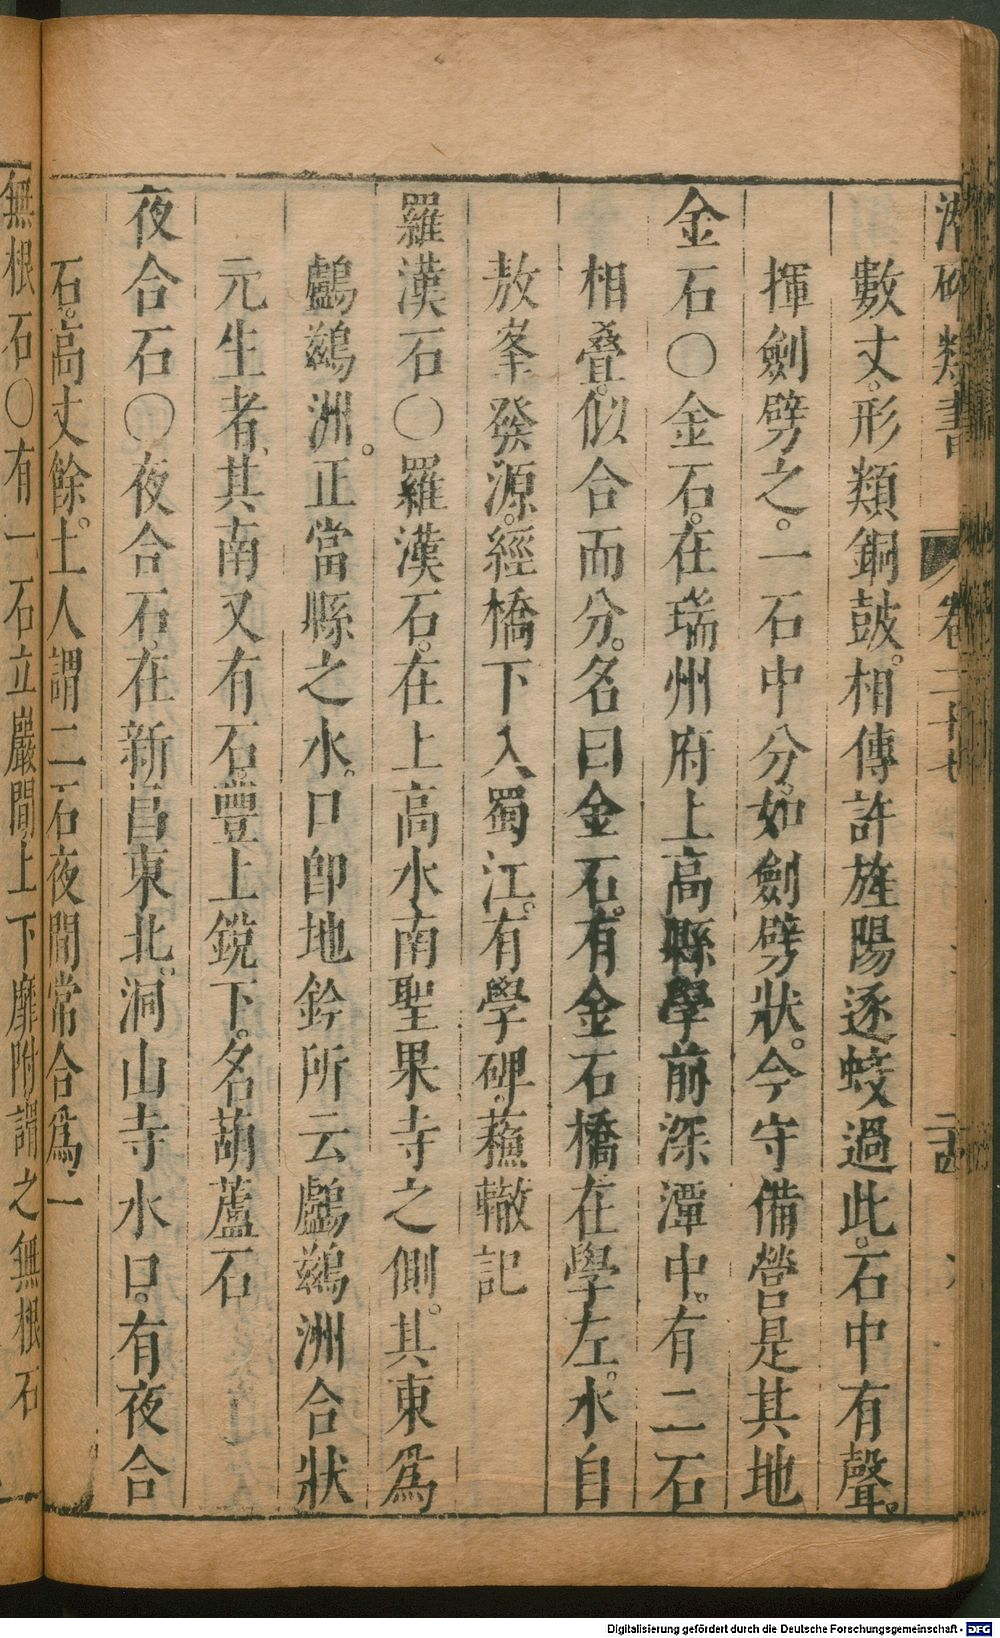 潛確類書　卷二十七　二四
數丈。形類銅鼓。相傳許旌陽逐蛟過此。石中有聲。
揮劍劈之。一石中分。如劍劈狀。今守備營是其地
金石〇金石。在瑞州府上高縣學前深潭中。有二石
相叠。似合而分。名曰金石。有金石橋在學左。水自
敖峯發源。經橋下入蜀江。有學碑。蘓轍記
羅漢石〇羅漢石。在上高水南聖果寺之側。其東爲
鸕鷀洲。正當縣之水。口卽地鈐所云鸕鷀洲合狀
元生者、其南又有石。豐上銳下。名葫蘆石
夜合石〇夜合石。在新昌東北。洞山寺水口。有夜合
石。高丈餘。土人謂二石夜間常合爲一
無根石〇有一石立巖間上下靡附謂之無根石
Digitalisierung gefördert durch die Deutsche Forschungsgemeinschaft - DFG